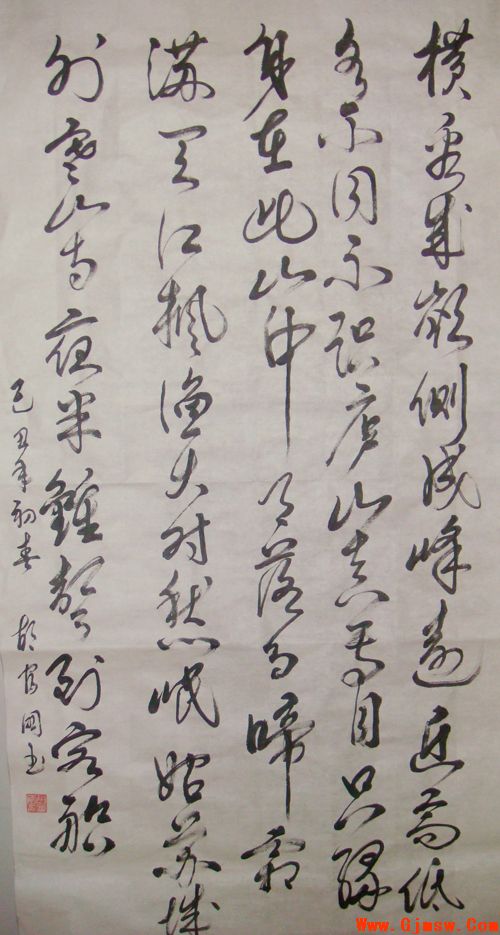 横看成嶺側成峰遠近高低
各不同不识庐山真面目只缘
身在此山中月落乌啼霜
满天江枫渔火对愁眠姑苏城
外寒山寺夜半鐘聲到客船
己丑年初春 胡國书
Www.Gjmsw.Com